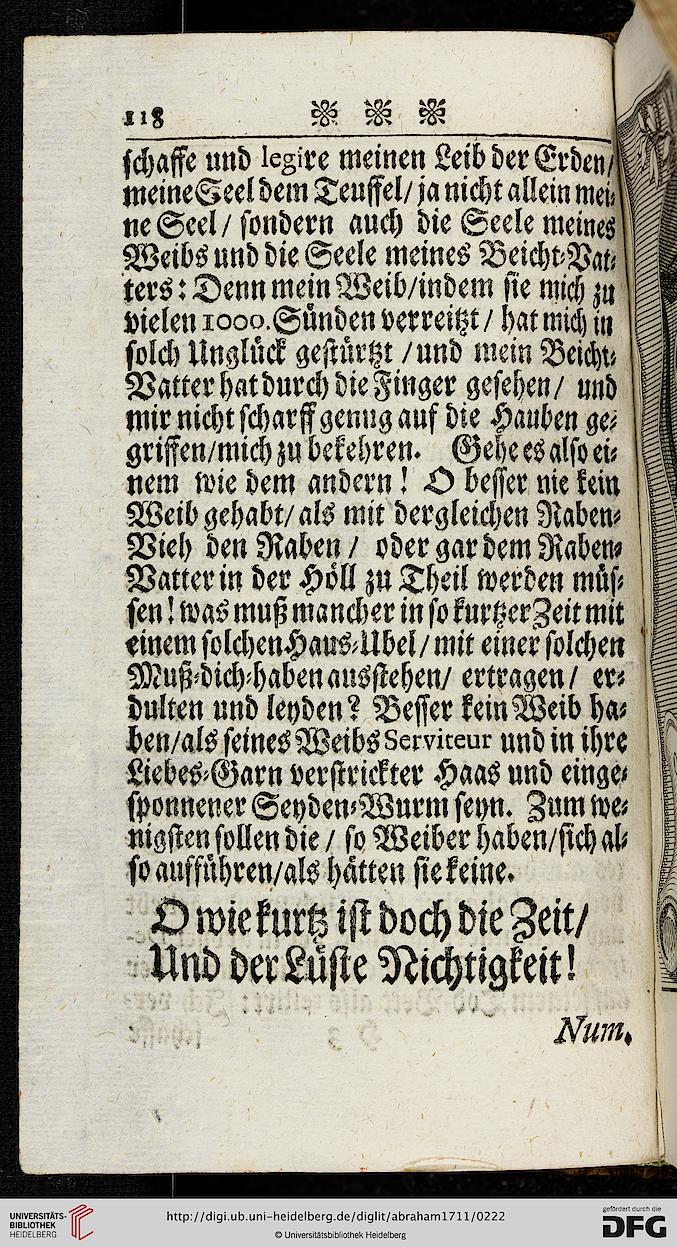 118
schaffe und legire meinen Leib der Erden/
meine Seel dem Teuffel/ ja nicht allein mei-
ne Seel / sondern auch die Seele meines
Weibs und die Seele meines Beicht-Vat-
ters: Denn mein Weib/indem sie mich zu
vielen 1000. Sünden verreitzt / hat mich in
solch Unglück gestürtzt / und mein Beicht-
Vatter hat durch die Finger gesehen / und
mir nicht scharff genug auf die Hauben ge-
griffen/mich zu bekehren. Gehe es also ei-
nem wie dem andern! O besser nie kein
Weib gehabt/ als mit dergleichen Raben-
Vieh den Raben / oder gar dem Raben-
Vatter in der Höll zu Theil werden müs-
sen! was muß mancher in so kurtzer Zeit mit
einem solchen Haus-Ubel / mit einer solchen
Muß-dich-haben ausstehen/ ertragen / er-
dulten und leyden? Besser kein Weib ha-
ben/als seines Weibs Serviteur und in ihre
Liebes-Garn verstrickter Haas und einge-
sponnener Seyden-Wurm seyn. Zum we-
nigsten sollen die / so Weiber haben/sich al-
so aufführen/als hätten sie keine.
O wie kurtz ist doch die Zeit/
Und der Lüste Nichtigkeit!
Num.
UNIVERSITÄTS-
BIBLIOTHEK
HEIDELBERG
http://digi.ub.uni-heidelberg.de/diglit/abraham1711/0222
© Universitätsbibliothek Heidelberg
gefördert durch die
DFG